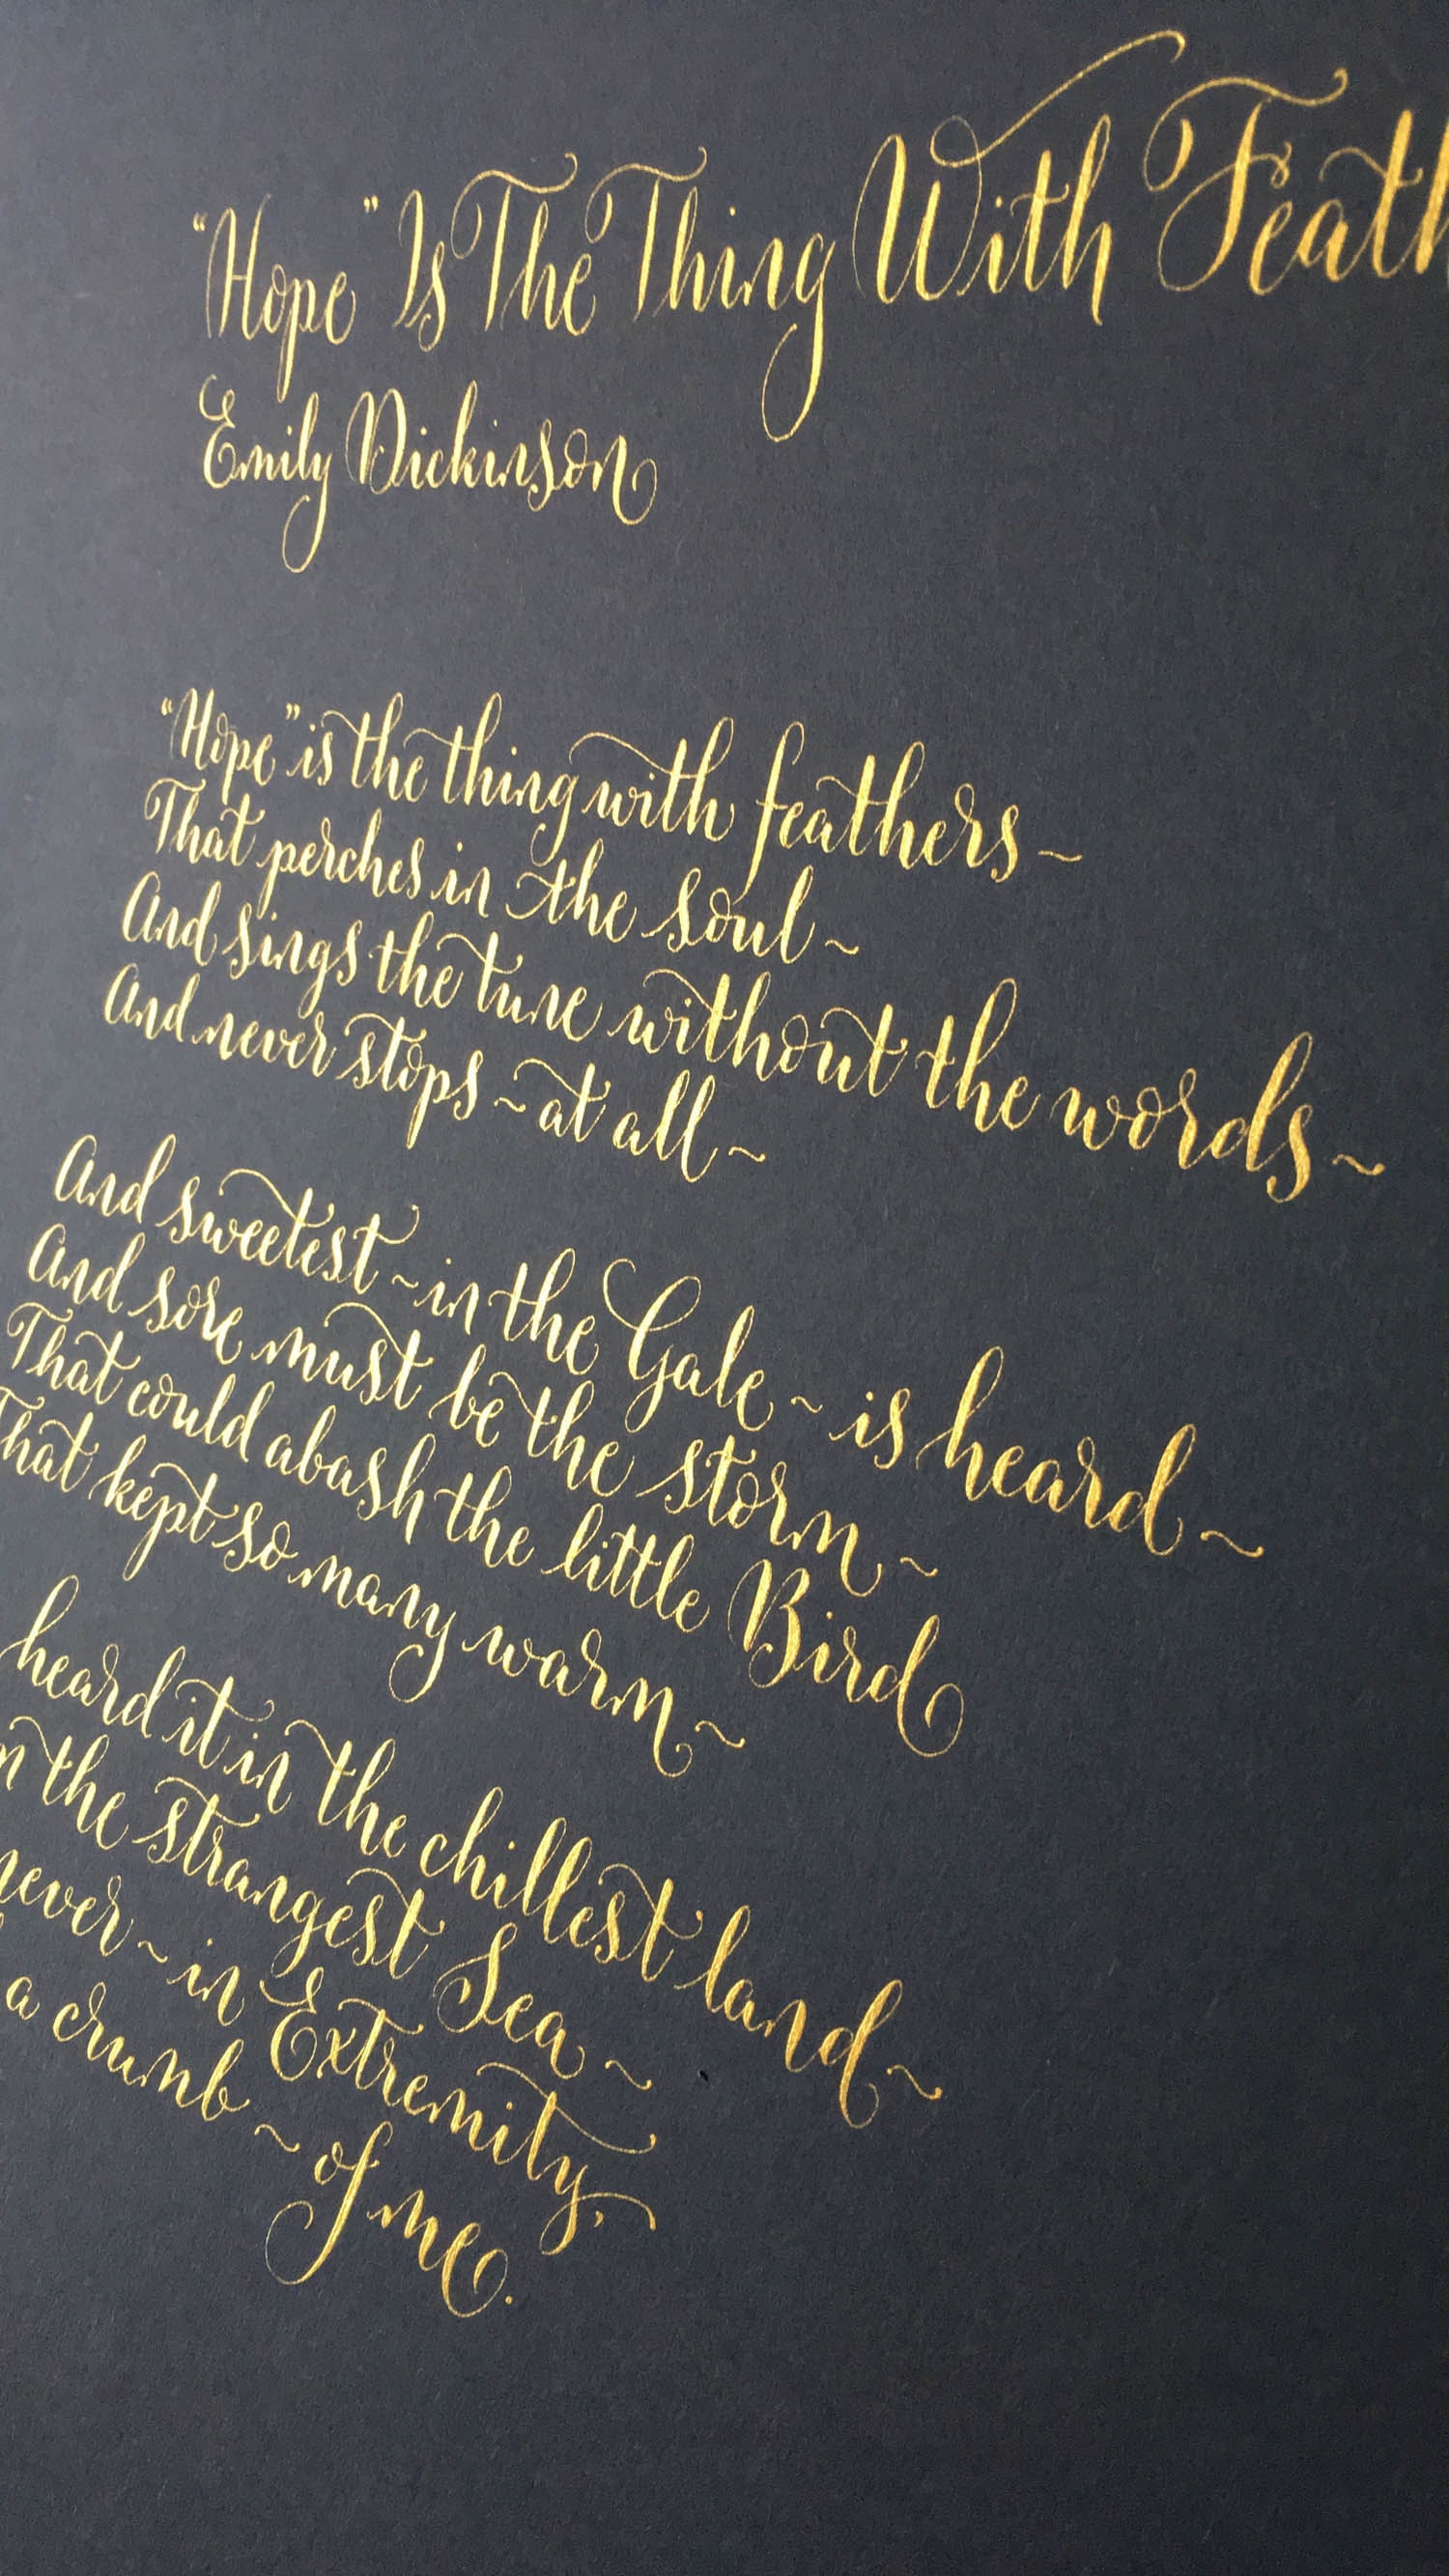 "Hope" Is The Thing With Feath
Emily Dickinson
"Hope" is the thing with feathers ~
That perches in the soul ~
And sings the tune without the words ~
And never stops ~ at all ~
And sweetest ~ in the Gale ~ is heard ~
And sore must be the storm ~
That could abash the little Bird
That kept so many warm ~
heard it in the chillest land ~
n the strangest Sea ~
never ~ in Extremity,
a crumb ~ of me.